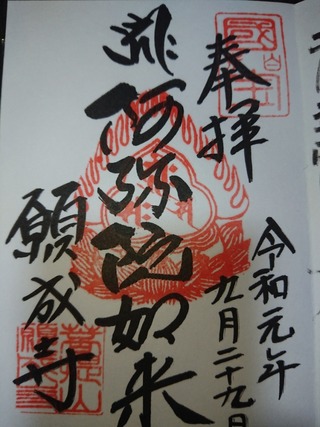 奉拝
令和元年
九月二十九日
阿弥陀如来
願成寺
国宝